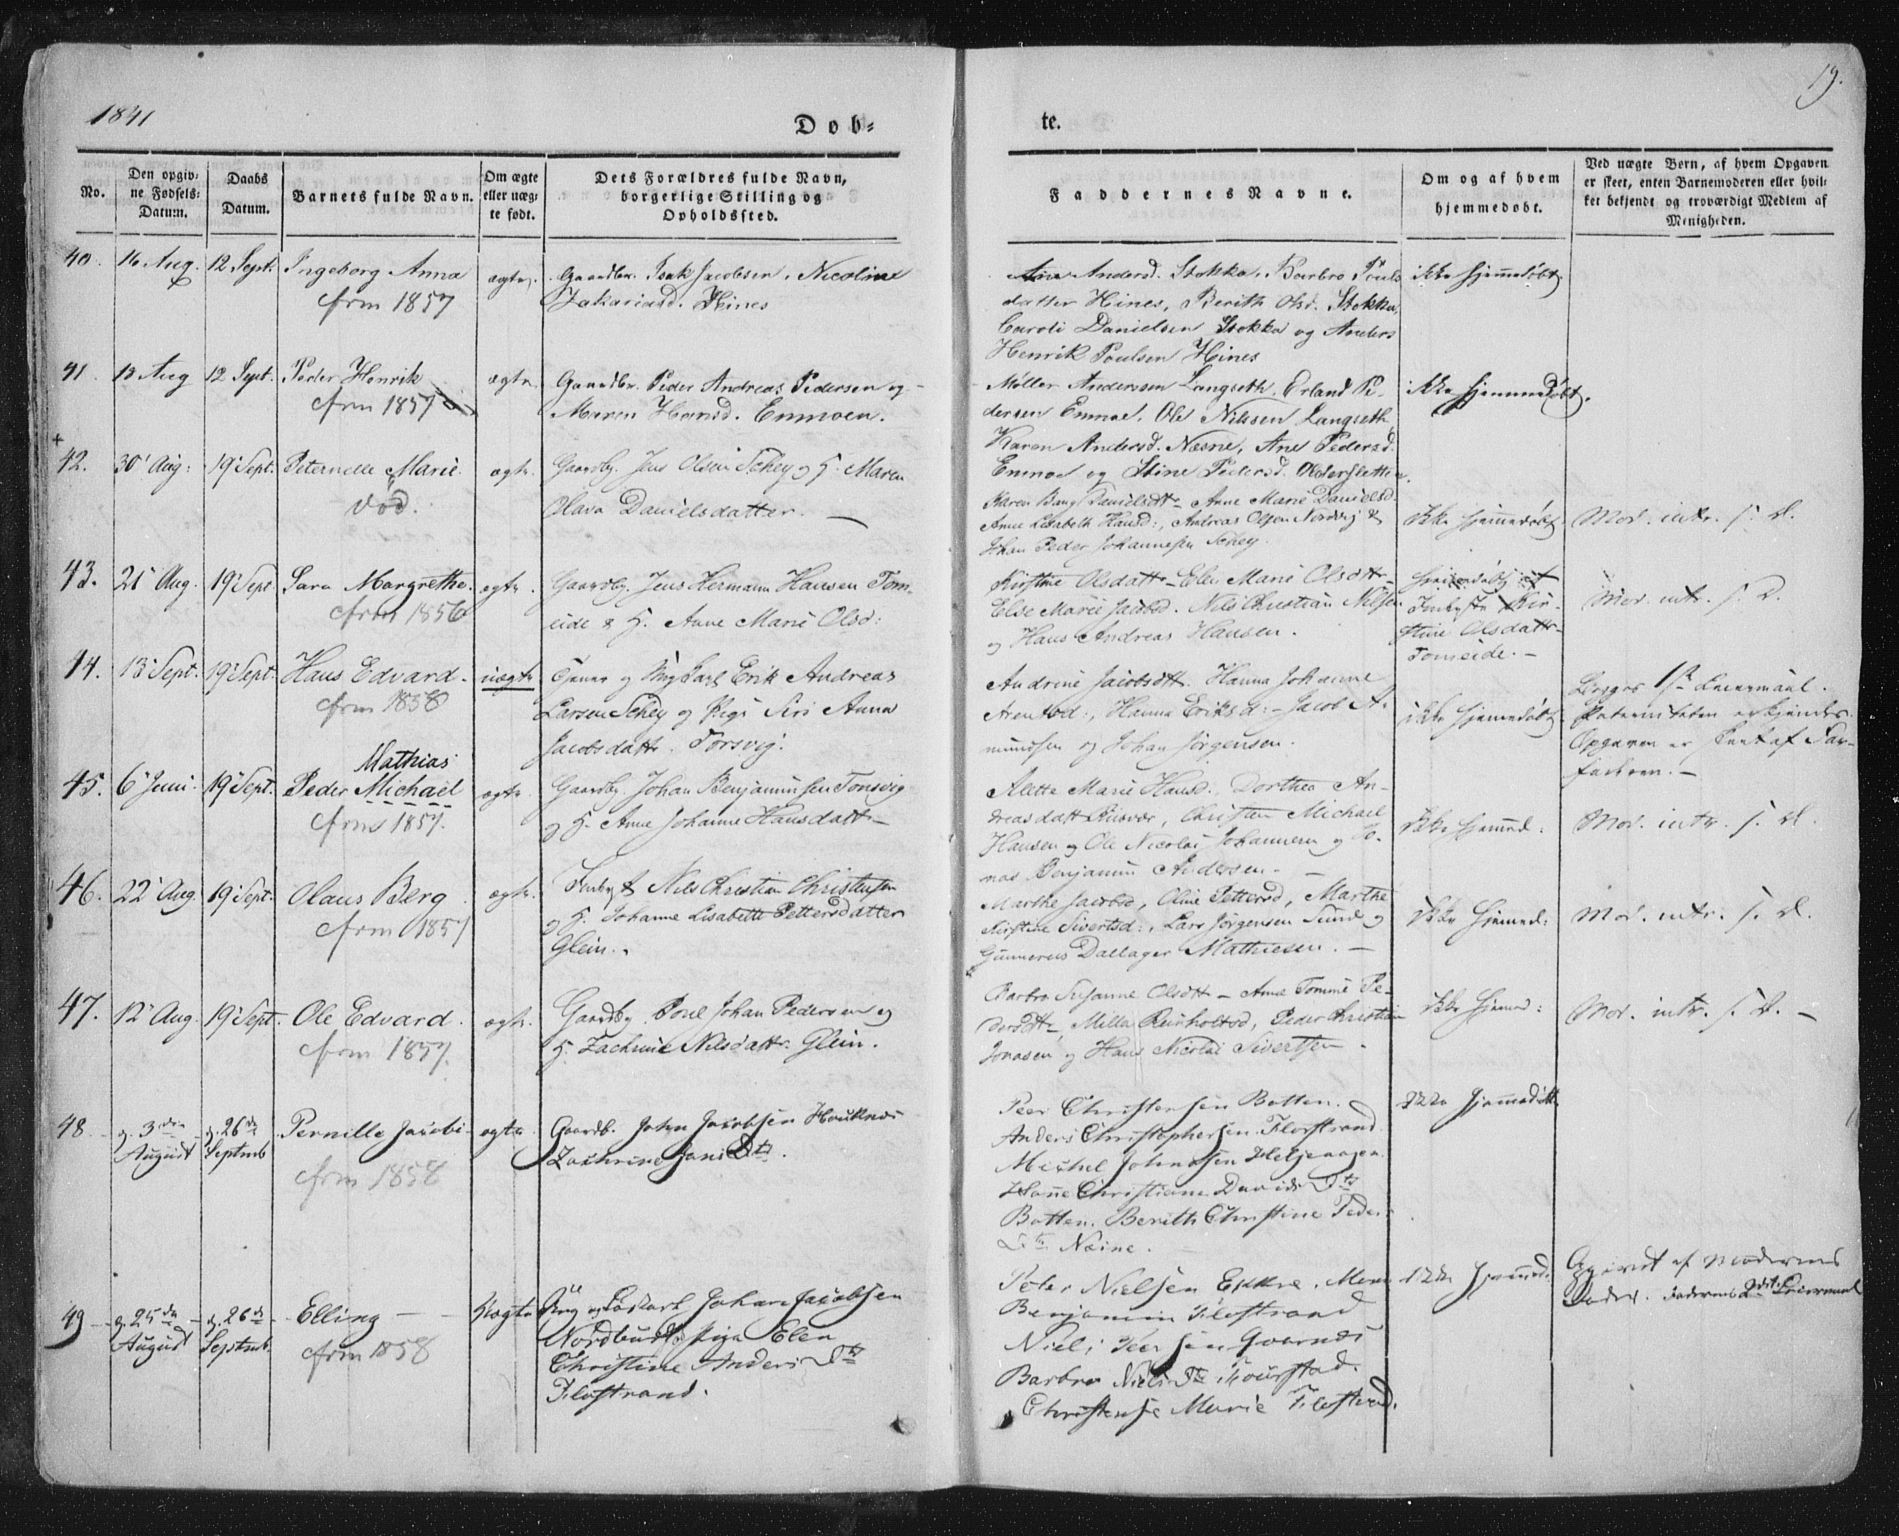 1841
19.
Døb-
te.
No.
Den opgiv-
ne Fødsels-
Datum.
Daabs
Datum.
Barnets fulde Navn.
Om ægte
eller uæg-
te født.
Dets Forældres fulde Navn,
borgerlige Stilling og
Opholdssted.
Faddernes Navne.
Om og af hvem
hjemmedøbt.
Ved uægte Børn, af hvem Opgaven
er skeet, enten Barnemoderen eller hvil-
ket bekjendt og troværdigt Medlem af
Menigheden.
40. 16 Aug. 12 Sept. Ingeborg Anna ægte. Gaardbr. Isak Jacobsen, Nicoline
cfrm 1857 Zakariasd. Hines
Ane Andersd. Stokka, Barbro Pouls
datter Hines, Berith Olsd. Stokka,
Caroli Danielsen Stokka og Anders
Henrik Poulsen Hines
ikke hjemmedøbt
41. 12 Sept. Peder Henrik ægte. Gaardbr. Peder Andreas Pedersen og
cfrm 1857 Maren Hansd. Enmoen.
Møller Anderssen Langseth, Erland Pe-
dersen Enmoe, Ole Nilssen Langseth
Karen Andersd. Næsne, Ane Pedersd.
Enmoe og Stine Pedersd.
ikke hjemmedøbt.
+
42. 30' Aug: 19' Sept. Peternelle Marie ægte. Gaardbr. Jens Olsen Schey og H. Maren
død. Olava Danielsdatter. —
Karen Bang Danielsdtr. Anne Marie Danielsd.
Anne Elisabeth Hansd:, Andreas Olsen Nordvig &
Johan Peder Johannesen Schey.
ikke hjemmedøbt Mod. intr. s. D.
43. 21' Aug. 19' Sept. Sara Margrethe. ægte. Gaardbr. Jens Hermann Hansen Tom-
cfrm 1856 eide & H. Anne Marie Olsd:
Kirstine Olsdattr. Elen Marie Olsdttr.
Else Marie Jacobsd. Nils Christian Nilsen
og Hans Andreas Hansen.
hjemmedøbt af
Indbyste Kir-
stine Olsdattr.
Tomeide. —
Mod. intr. s. D.
44. 13' Sept. 19' Sept. Hans Edvard. uægte og Ungkarl Erik Andreas
cfrm 1858 Larsen Schey og Pige Siri Anna
Jacobsdattr. Forsvig.
Andrine Jacobsdtt. Hanna Johanne
Arentsd:, Hanna Eriksd: Jacob A-
mundsen og Johan Jørgensen.
ikke hjemmedøbt
Begges 1ste Leiermaal.
Paterniteten erkjendes.
Opgaven er skeet af Bar-
nefaderen. —
Mathias
45. 6' Juni 19' Sept. Peder Michael ægte. Gaardbr. Johan Benjaminsen Tonsvig
cfrm 1857. og H. Anne Johanne Hansdattr.
Alette Marie Hansd:, Dorthea An-
dreasdatt, Christen Michael
Hansen og Ole Nicolai Johannesen og Jo-
nas Benjamin Andersen. —
ikke hjemmed: Mod. intr. s. D.
46. 22' Aug 19' Sept. Olaus Berg ægte. Nils Christian Christensen
cfrm 1857 og H. Johanne Lisabeth Pettersdatter
Glein.
Marthe Jacobsd, Oline Pettersd, Marthe
Kirstine Sivertsd:, Lars Jørgensen Sund og
Gunnerus Dallager Mathiesen. —
ikke hjemmed: Mod. intr. s. D.
47. 12' Aug. 19' Sept. Ole Edvard. ægte. Gaardbr. Poul Johan Pedersen og
cfrm 1857. H. Zachrine Nilsdattr. Glein.
Barbra Susanne Olsdtt — Anne Tomine Pe-
dersdtt Milla Reinholtsd, Peder Christian
Jonasen og Hans Nicolai Sivertsen.
ikke hjemmed: Mod. intr. s. D. —
48 d. 3die d. 26de Pernille Jacobi- ægte Gaardb. John Jacobsen Houknes
August Septmb Zachrine Dtr.
cfrm 1858
Peer Christensen Botten.
Anders Christophersen Florstrand.
Michel Johnsen
Hanne Christiane Davids Dtr
Botten. Berith Christine Peder-
Dtr Næsne.
ikke hjemmedøbt
49 d. 25de d. 26de Elling — Uægte Ung Johan Jacobsen
August Septmb. Pige Elen
cfrm 1858 Christine Anders Dtr
Flostrand.
Peter Nielsen
Benjamin Flostrand
Niels Peersen
Barbra Niels Dtr
Christense Marie Flostrand.
ikke hjemmed.
Opgivet af Moderens
Fader. Faderens 2det Leiermaal